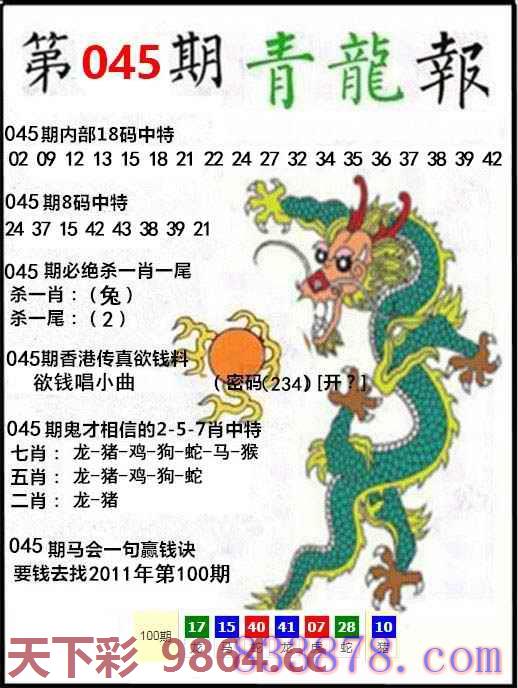 第045期 青龍報
045期内部18码中特
02 09 12 13 15 18 21 22 24 27 32 34 35 36 37 38 39 42
045期8码中特
24 37 15 42 43 38 39 21
045 期必绝杀一肖一尾
杀一肖：（兔）
杀一尾：（2）
045期香港传真欲钱料
欲钱唱小曲 （密码(234)[开？]
045期鬼才相信的2-5-7肖中特
七肖： 龙-猪-鸡-狗-蛇-马-猴
五肖： 龙-猪-鸡-狗-蛇
二肖： 龙-猪
045期马会一句赢钱诀
要钱去找2011年第100期
100期 17 15 40 41 07 28 10
龙 马 蛇 龙 虎 蛇 猪
天下彩 9864.cc
838878.com